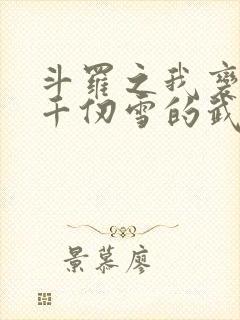 斗羅之我變
千仞雪的武
景慕廖